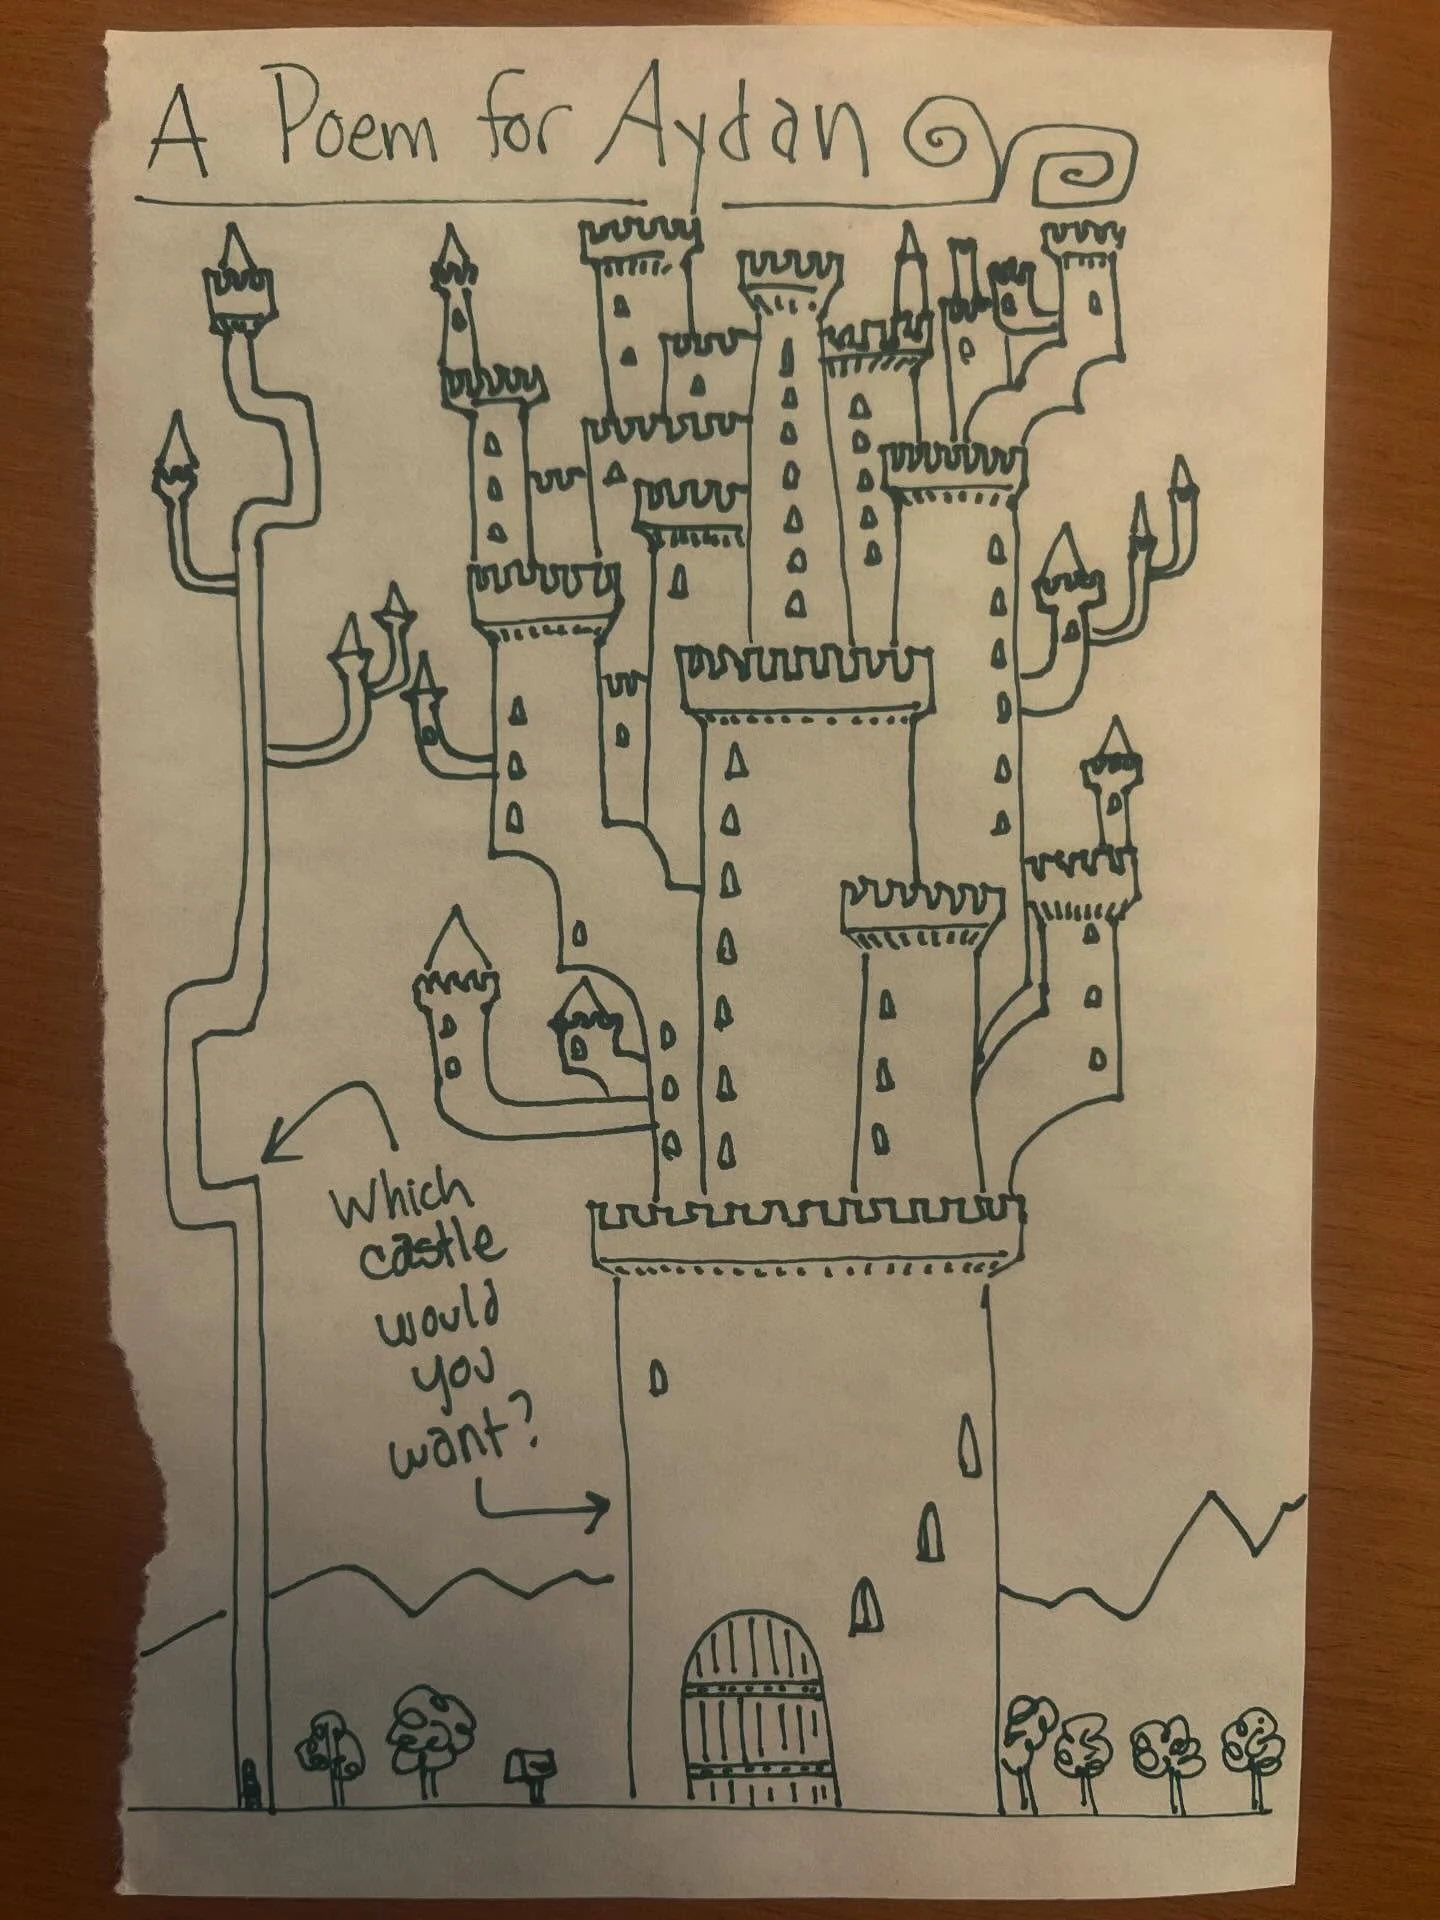 A Poem for Aydan
Which
castle
would
you
want?